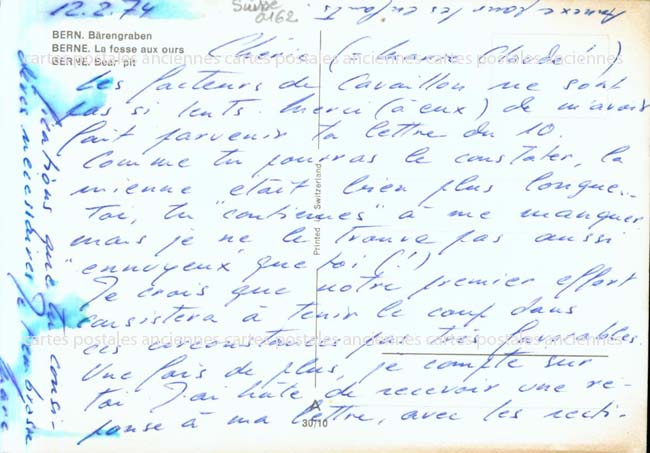 12.2.74
Suisse
0162
Annexe pour les enfants
BERN. Bärengraben
BERNE. La fosse aux ours
BERNE. Bear pit
Chérie (
Les facteurs de Cavaillon ne sont
pas si lents. Merci (à eux) de m'avoir
fait parvenir ta lettre du 10.
Comme tu pourras le constater, la
mienne était bien plus longue..
Toi, tu "continues" à me manquer
mais je ne le trouve pas aussi
"ennuyeux" que toi (!)
Je crois que notre premier effort
consistera à tenir le coup dans
ces circonstances peu favorables.
Une fois de plus, je compte sur
toi. J'ai hâte de recevoir une ré-
ponse à ma lettre, avec les recti-
fications que tu consi-
dères nécessaires. Je t'embrasse
Marc
Printed in Switzerland
A
30/10
cartes postales anciennes cartes postales anciennes cartes postales anciennes